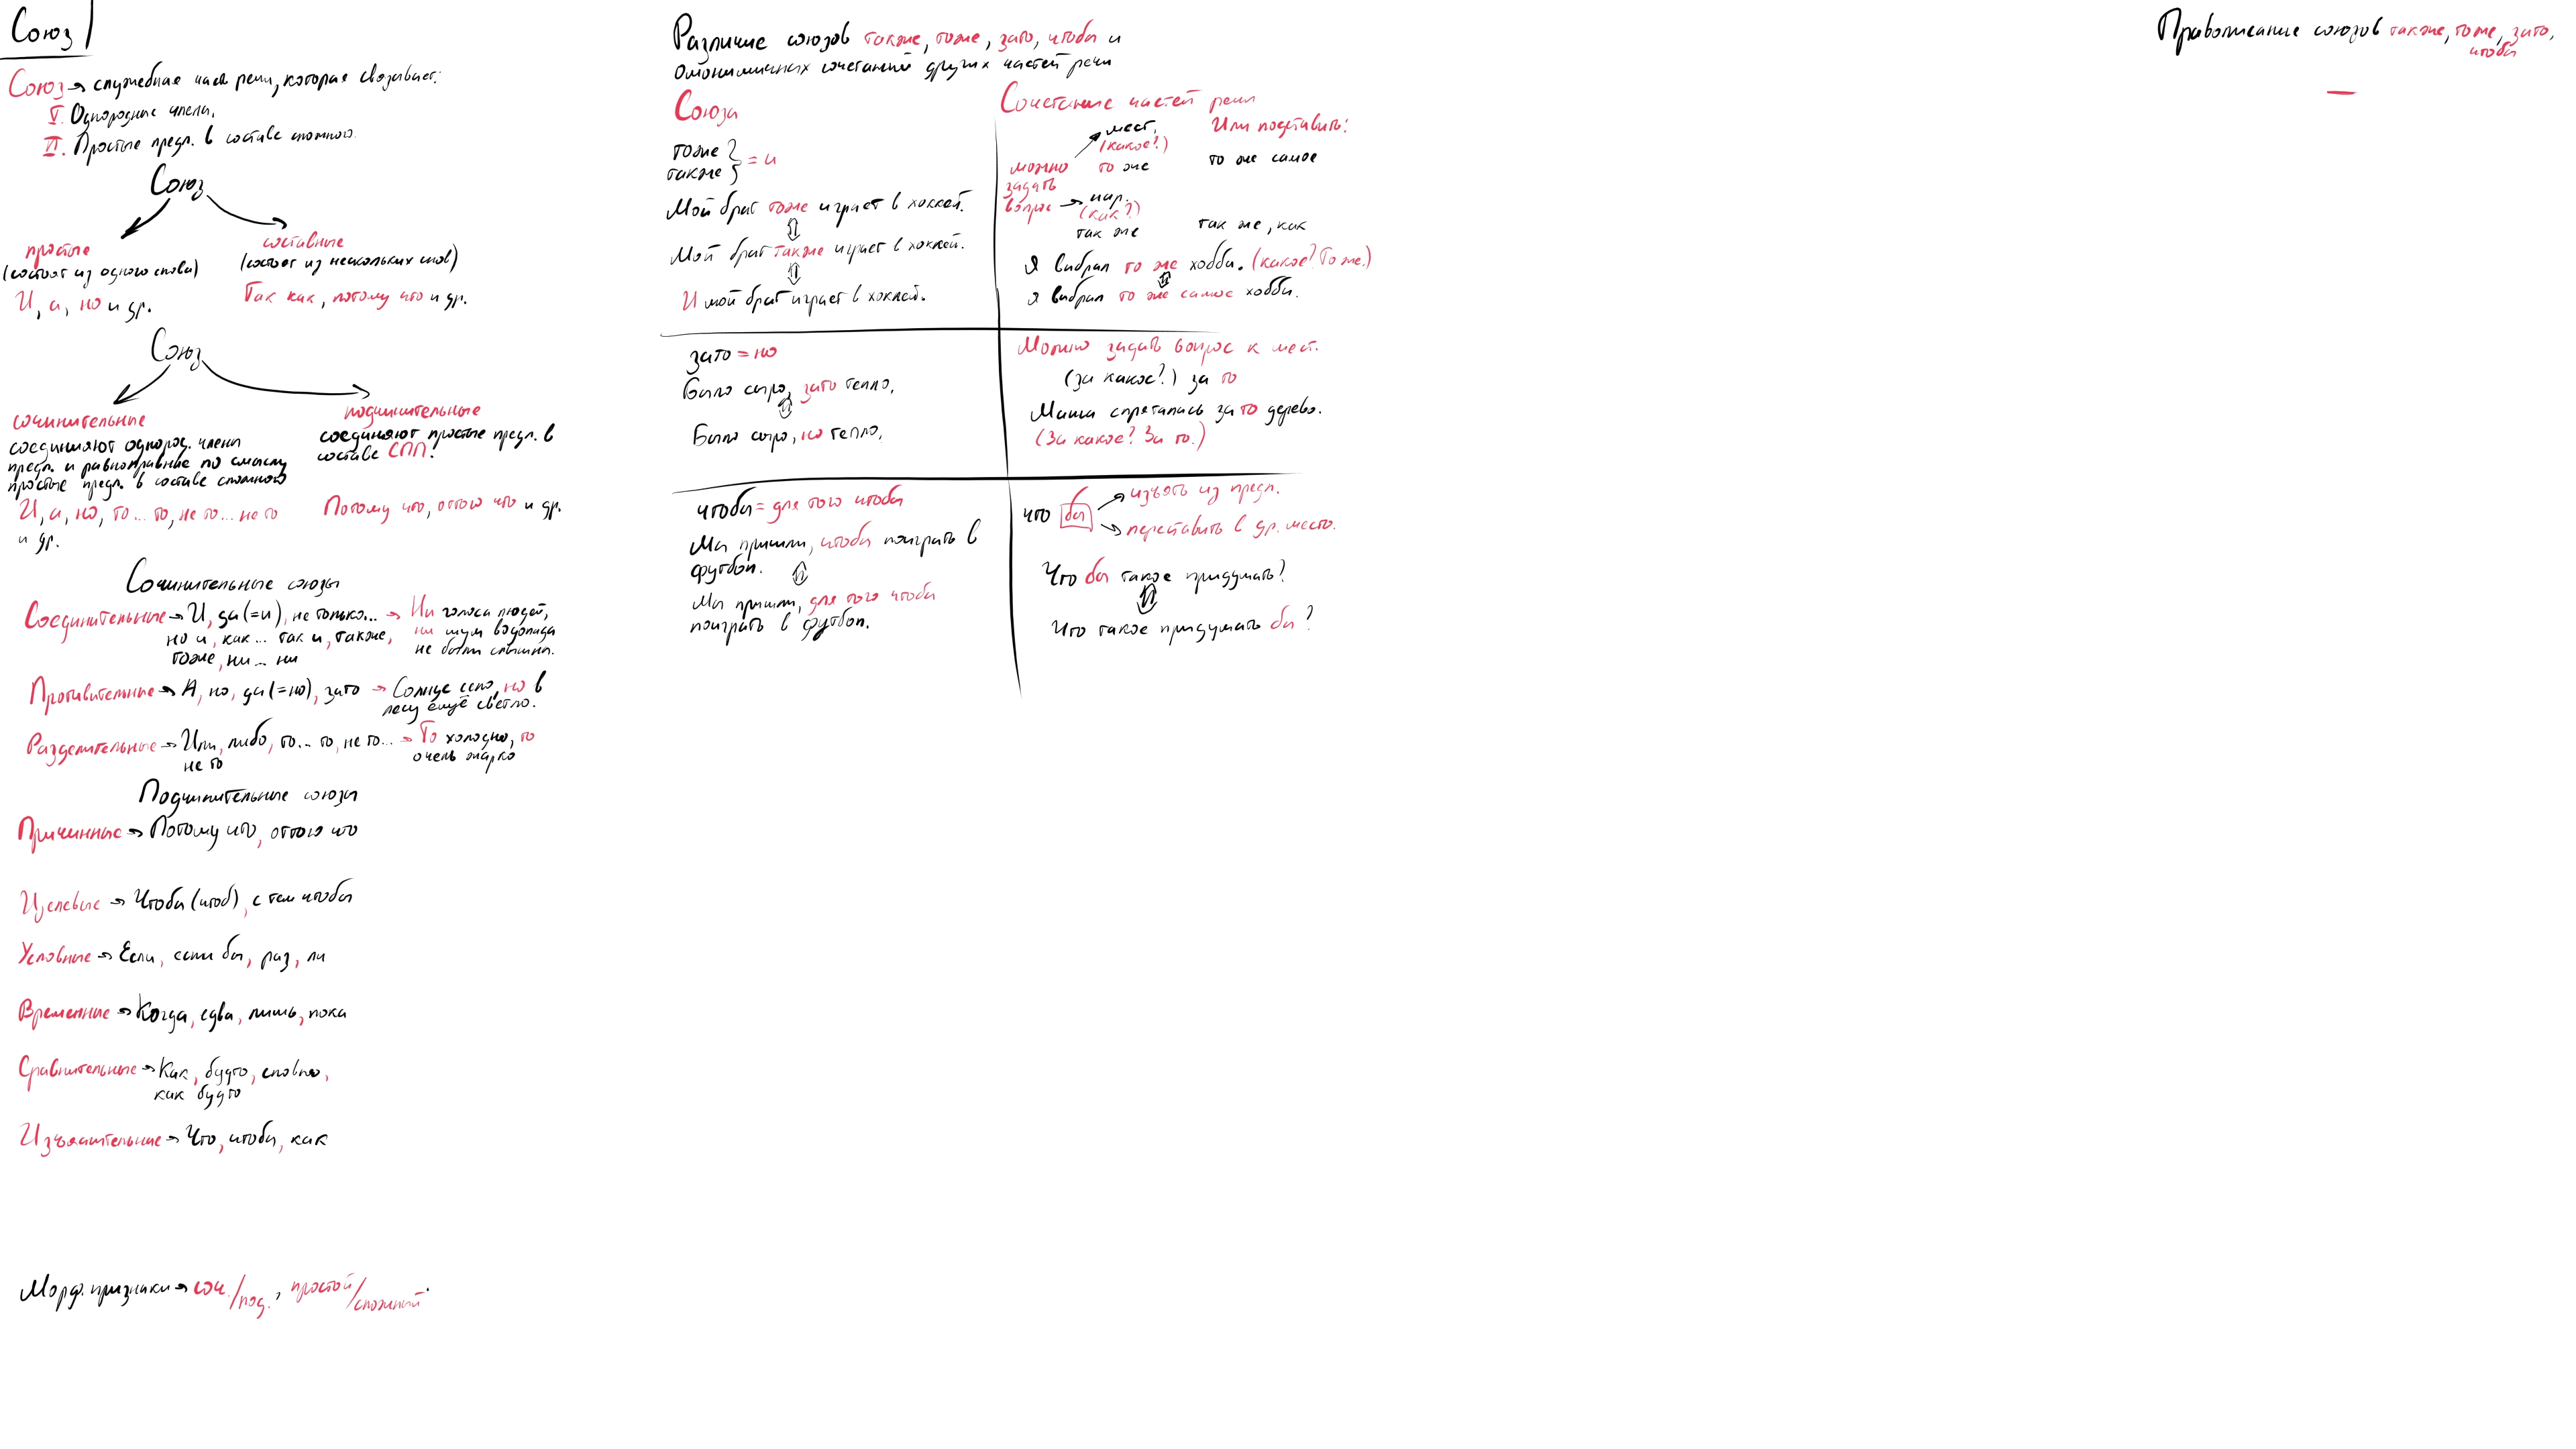 Союз
Союз → служебная часть речи, которая связывает:
I. Однородные члены,
II. Простые предл. в составе сложного.
Союз
простые
(состоят из одного слова)
И, а, но и др.
составные
(состоят из нескольких слов)
Так как, потому что и др.
Союз
сочинительные
соединяют однород. члены
предл. и равноправные по смыслу
простые предл. в составе сложного
И, а, но, то... то, не то... не то
и др.
подчинительные
соединяют простые предл. в
составе СПП!
Потому что, оттого что и др.
Сочинительные союзы
Соединительные → И, да (=и), не только... → Ни голоса людей,
но и, как... так и, также, ни шум водопада
тоже, ни... ни не были слышны.
Противительные → А, но, да (=но), зато → Солнце село, но в
лесу ещё светло.
Разделительные → Или, либо, то... то, не то... → То холодно, то
не то очень жарко
Подчинительные союзы
Причинные → Потому что, оттого что
Целевые → Чтобы (чтоб), с тем чтобы
Условные → Если, если бы, раз, ли
Временные → Когда, едва, лишь, пока
Сравнительные → Как, будто, словно,
как будто
Изъяснительные → Что, чтобы, как
Морф. признаки → соч./под., простой/сложный.
Различие союзов также, тоже, зато, чтобы и
омонимичных сочетаний других частей речи
Союзы
тоже
также } = и
Мой брат тоже играет в хоккей.
Мой брат также играет в хоккей.
И мой брат играет в хоккей.
Сочетание частей речи
мест.
(какое?)
можно то же
задать
вопрос → нар.
(как?)
так же
Или подставить:
то же самое
так же, как
Я выбрал то же хобби. (какое? То же.)
Я выбрал то же самое хобби.
зато = но
Было сыро, зато тепло.
Было сыро, но тепло.
Можно задать вопрос к мест.
(за какое?) за то
Маша спряталась за то дерево.
(За какое? За то.)
чтобы = для того чтобы
Мы пришли, чтобы поиграть в
футбол.
Мы пришли, для того чтобы
поиграть в футбол.
что бы → изъять из предл.
→ переставить в др. место.
Что бы такое придумать?
Что такое придумать бы?
Правописание союзов также, тоже, зато,
чтобы